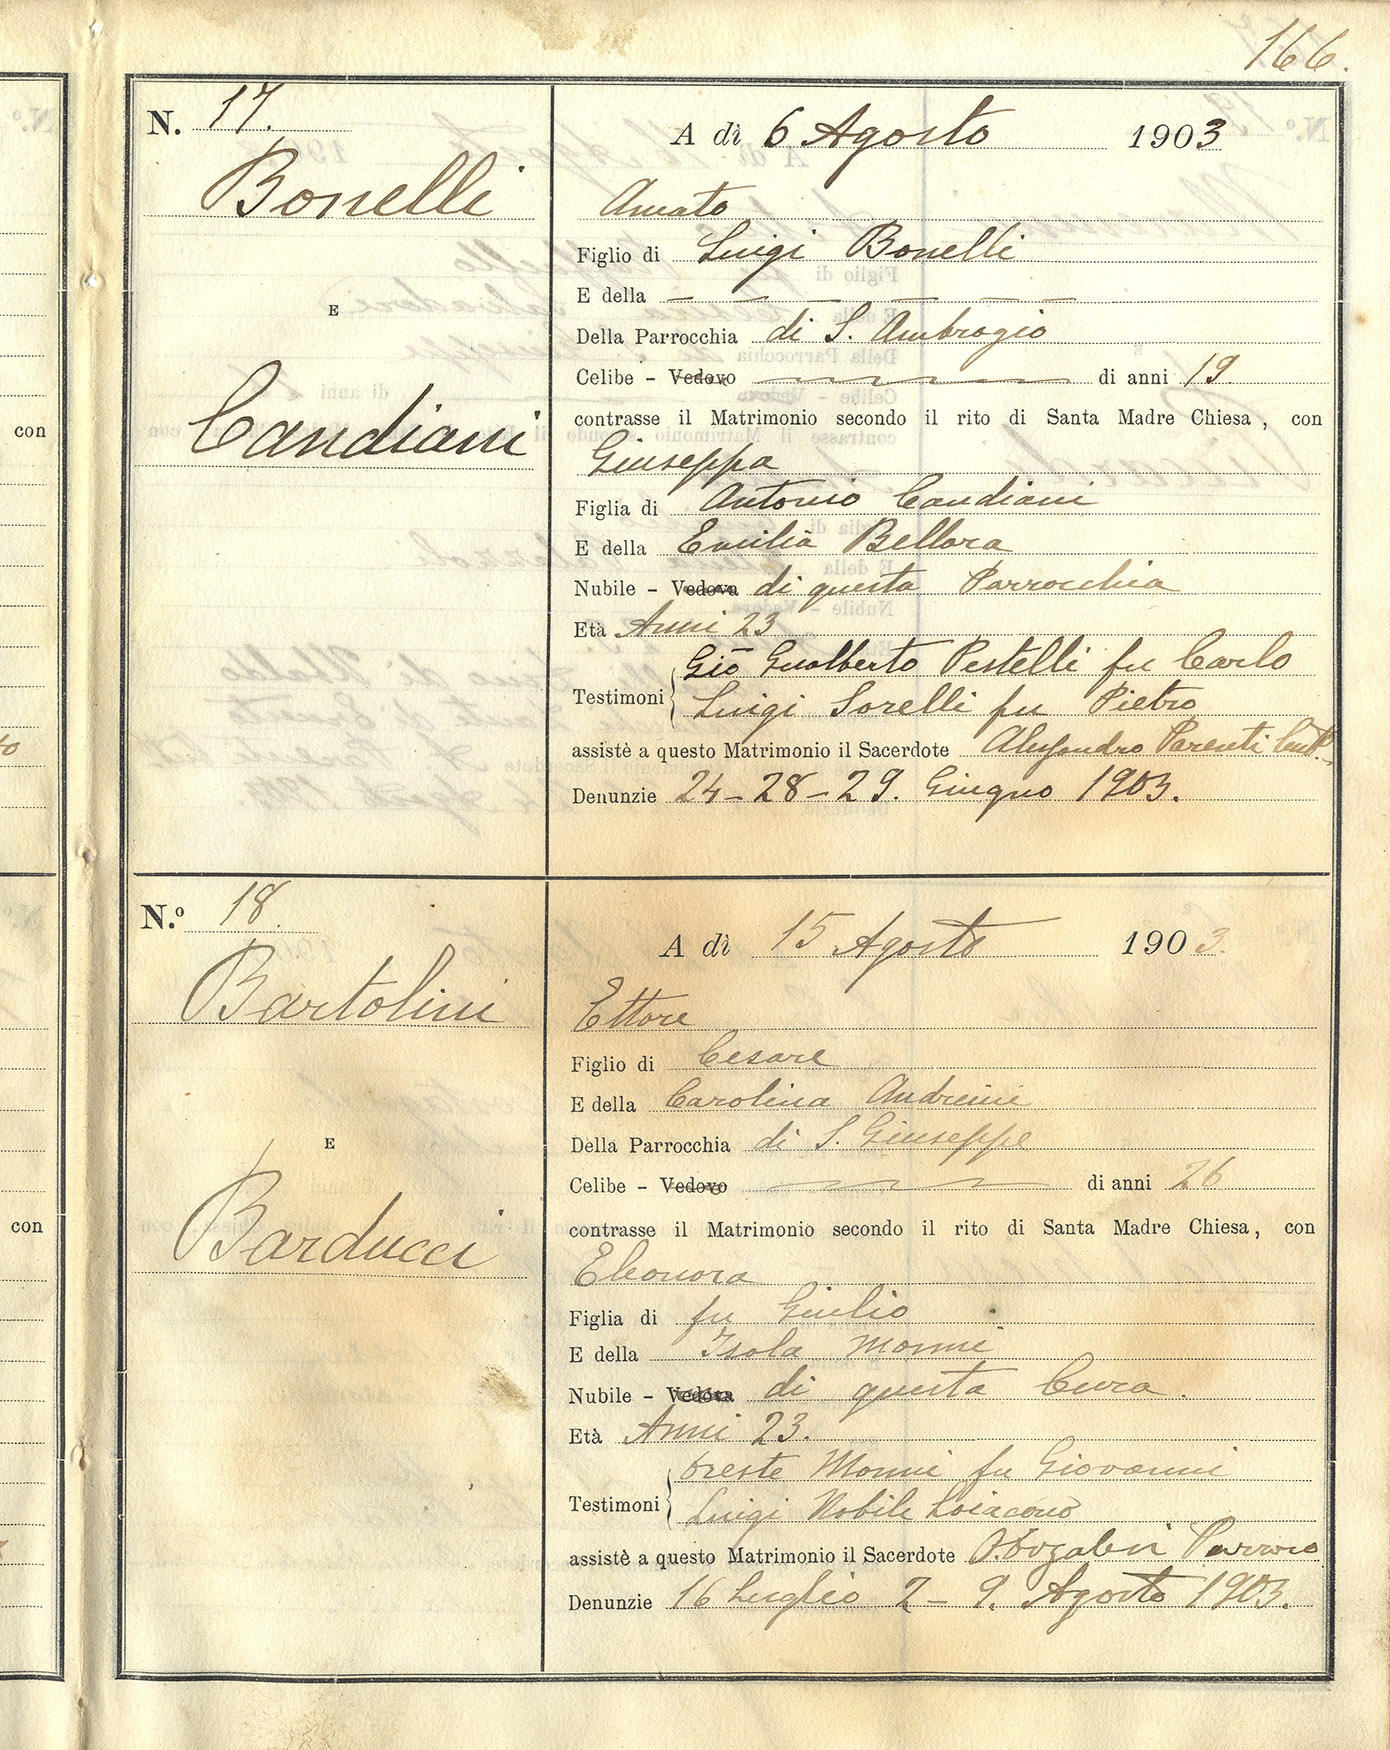 166.
N. 17.
Bonelli
E
Candiani
A dì 6 Agosto 1903
Amato
Figlio di Luigi Bonelli
E della — — — — — —
Della Parrocchia di S. Ambrogio
Celibe - Vedovo di anni 19.
contrasse il Matrimonio secondo il rito di Santa Madre Chiesa, con
Giuseppa
Figlia di Antonio Candiani
E della Emilia Bellora
Nubile - Vedova di questa Parrocchia
Età Anni 23
Gio Gualberto Pestelli fu Carlo
Testimoni
Luigi Sorelli fu Pietro
assistè a questo Matrimonio il Sacerdote Alessandro Parenti
Denunzie 24-28-29. Giugno 1903.
N.º 18.
Bartolini
E
Barducci
A dì 15 Agosto 1903.
Ettore
Figlio di Cesare
E della Carolina Andreini
Della Parrocchia di S. Giuseppe
Celibe - Vedovo di anni 26
contrasse il Matrimonio secondo il rito di Santa Madre Chiesa, con
Eleonora
Figlia di fu Giulio
E della Isola Monni
Nubile - Vedova di questa Cura.
Età Anni 23.
Oreste Monni fu Giovanni
Testimoni
Luigi Nobile Loiacono
assistè a questo Matrimonio il Sacerdote
Denunzie 16 Luglio 2-9. Agosto 1903.
con
con